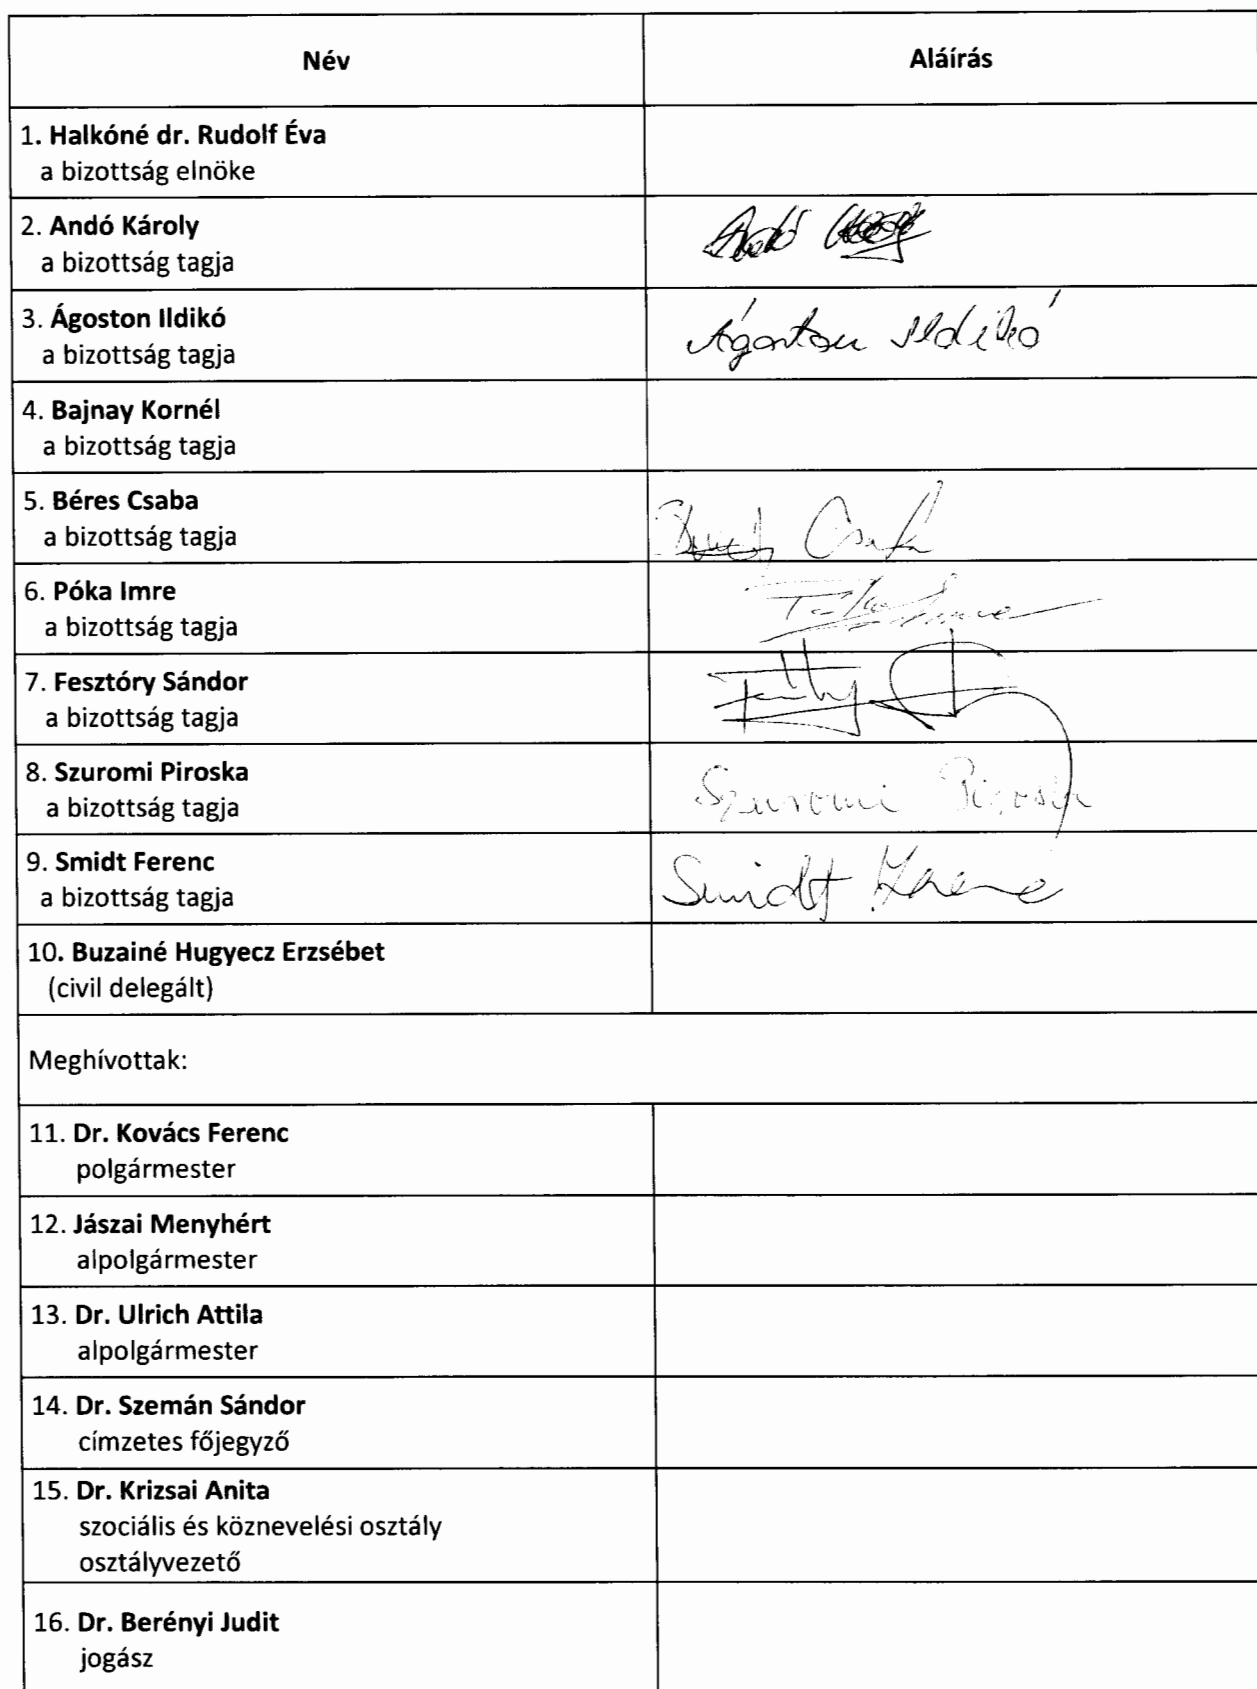 Név Aláírás
1. Halkóné dr. Rudolf Éva
a bizottság elnöke
2. Andó Károly
a bizottság tagja
Andó
3. Ágoston Ildikó
a bizottság tagja
Ágoston Ildikó
4. Bajnay Kornél
a bizottság tagja
5. Béres Csaba
a bizottság tagja
Csaba
6. Póka Imre
a bizottság tagja
7. Fesztóry Sándor
a bizottság tagja
8. Szuromi Piroska
a bizottság tagja
Szuromi Piroska
9. Smidt Ferenc
a bizottság tagja
Smidt Ferenc
10. Buzainé Hugyecz Erzsébet
(civil delegált)
Meghívottak:
11. Dr. Kovács Ferenc
polgármester
12. Jászai Menyhért
alpolgármester
13. Dr. Ulrich Attila
alpolgármester
14. Dr. Szemán Sándor
címzetes főjegyző
15. Dr. Krizsai Anita
szociális és köznevelési osztály
osztályvezető
16. Dr. Berényi Judit
jogász